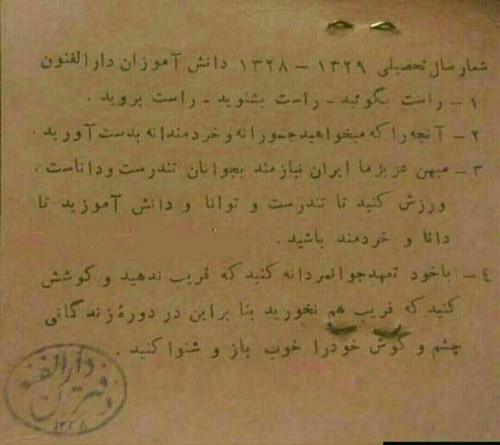 شعار سال تحصیلی ۱۳۲۹ – ۱۳۲۸ دانش آموزان دارالفنون
۱ – راست بگوئید – راست بشنوید – راست بروید .
۲ – آنچه را که میخواهید جسورانه و خردمندانه بدست آورید .
۳ – میهن عزیز ما ایران نیازمند بجوانان تندرست و داناست .
ورزش کنید تا تندرست و توانا و دانش آموزید تا
دانا و خردمند باشید .
٤ – باخود تعهد جوانمردانه کنید که فریب ندهید و کوشش
کنید که فریب هم نخورید بنا براین در دورهٔ زندگانی
چشم و گوش خودرا خوب باز و شنوا کنید .
دفتر دبیرستان دارالفنون